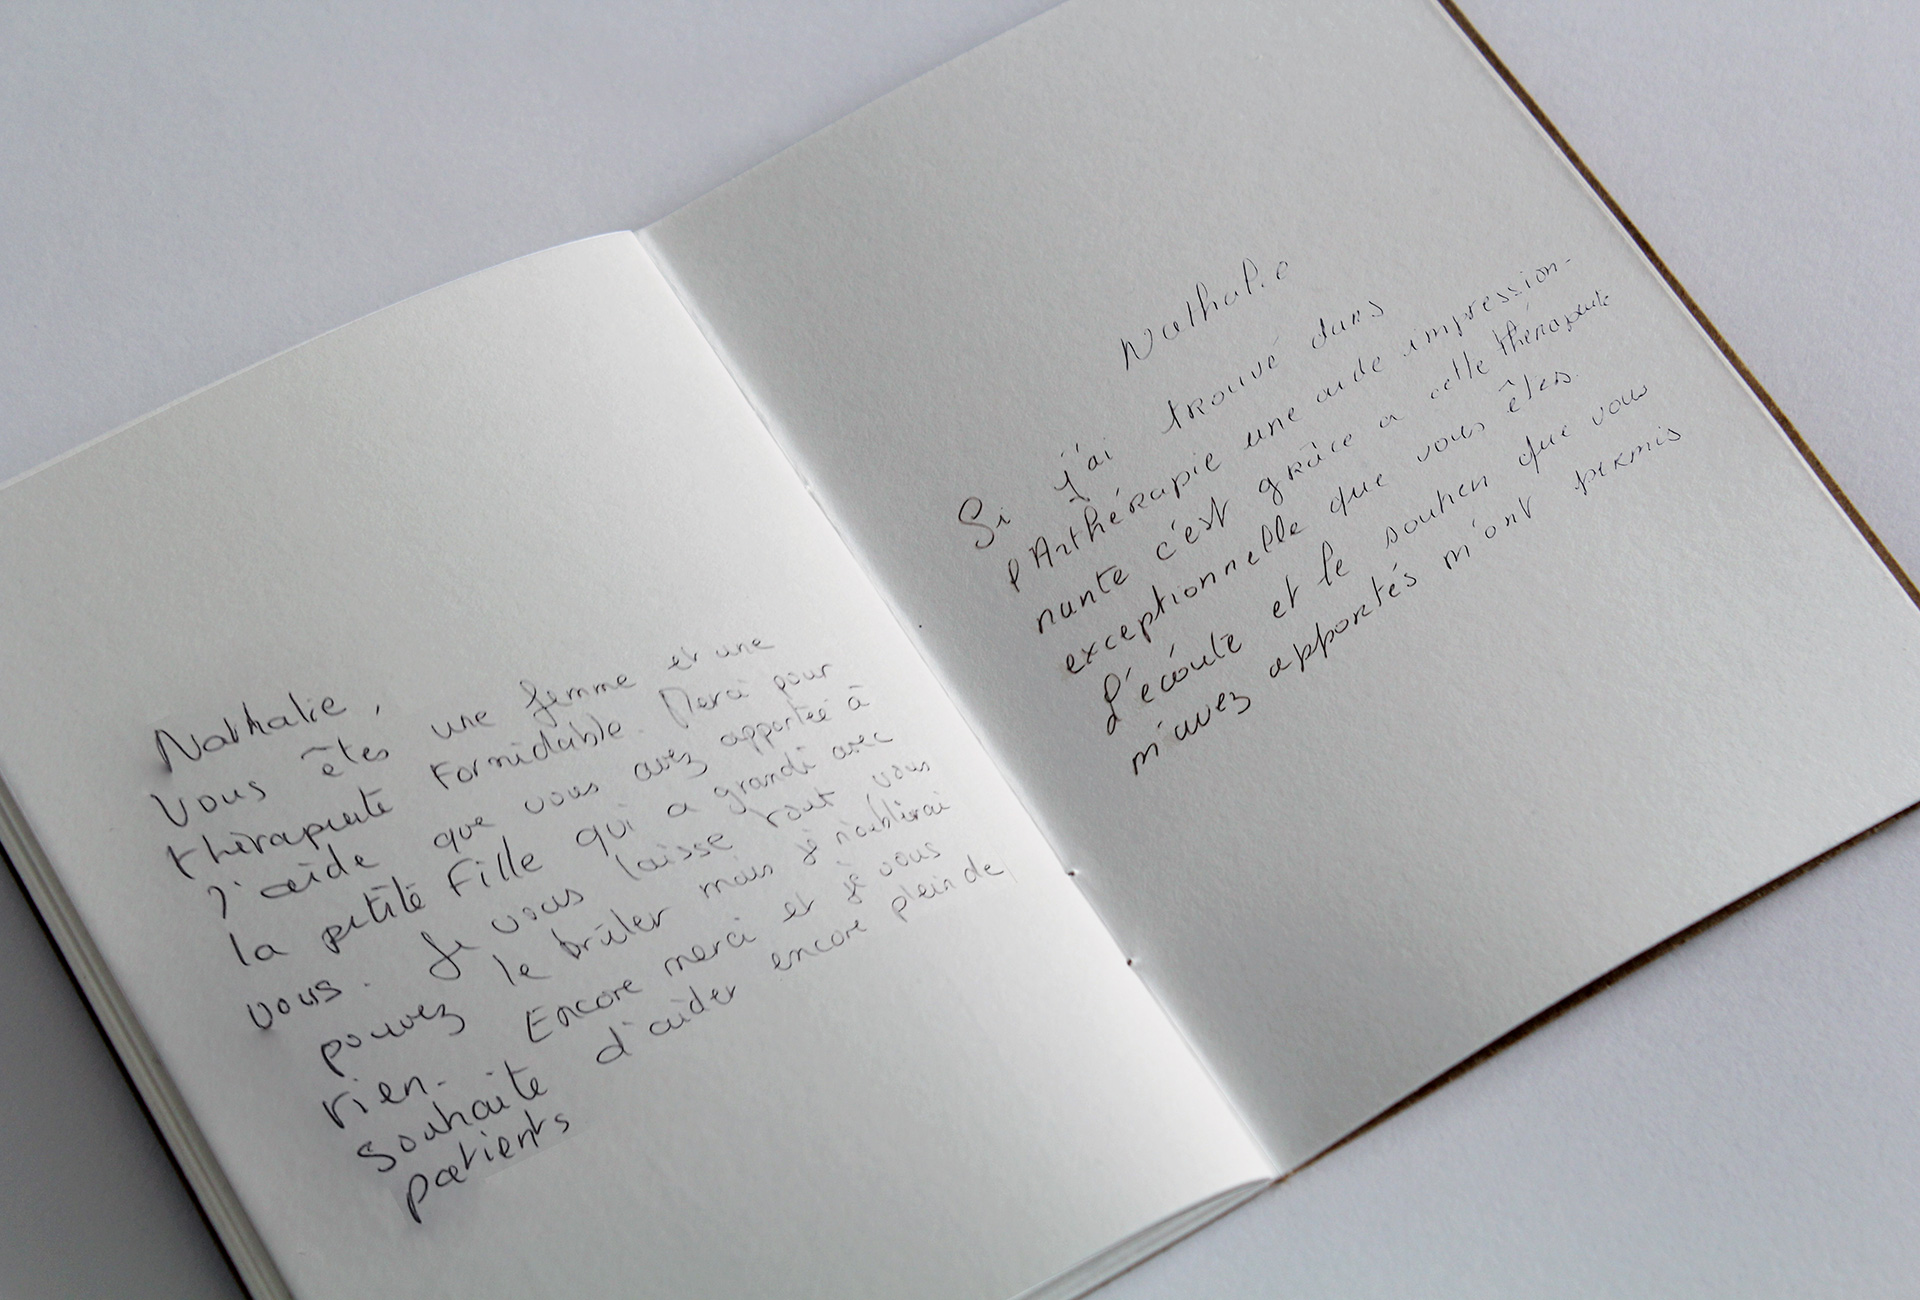 Nathalie,
Vous êtes une femme et une
thérapeute formidable. Merci pour
l'aide que vous avez apportée à
la petite fille qui a grandi avec
vous. Je vous laisse tout vous
pouvez le brûler mais je n'oublierai
rien. Encore merci et je vous
souhaite d'aider encore plein de
patients
Nathalie
Si j'ai trouvé dans
l'Arthérapie une aide impression-
nante c'est grâce a cette thérapeute
exceptionnelle que vous êtes.
L'écoute et le soutien que vous
m'avez apportés m'ont permis